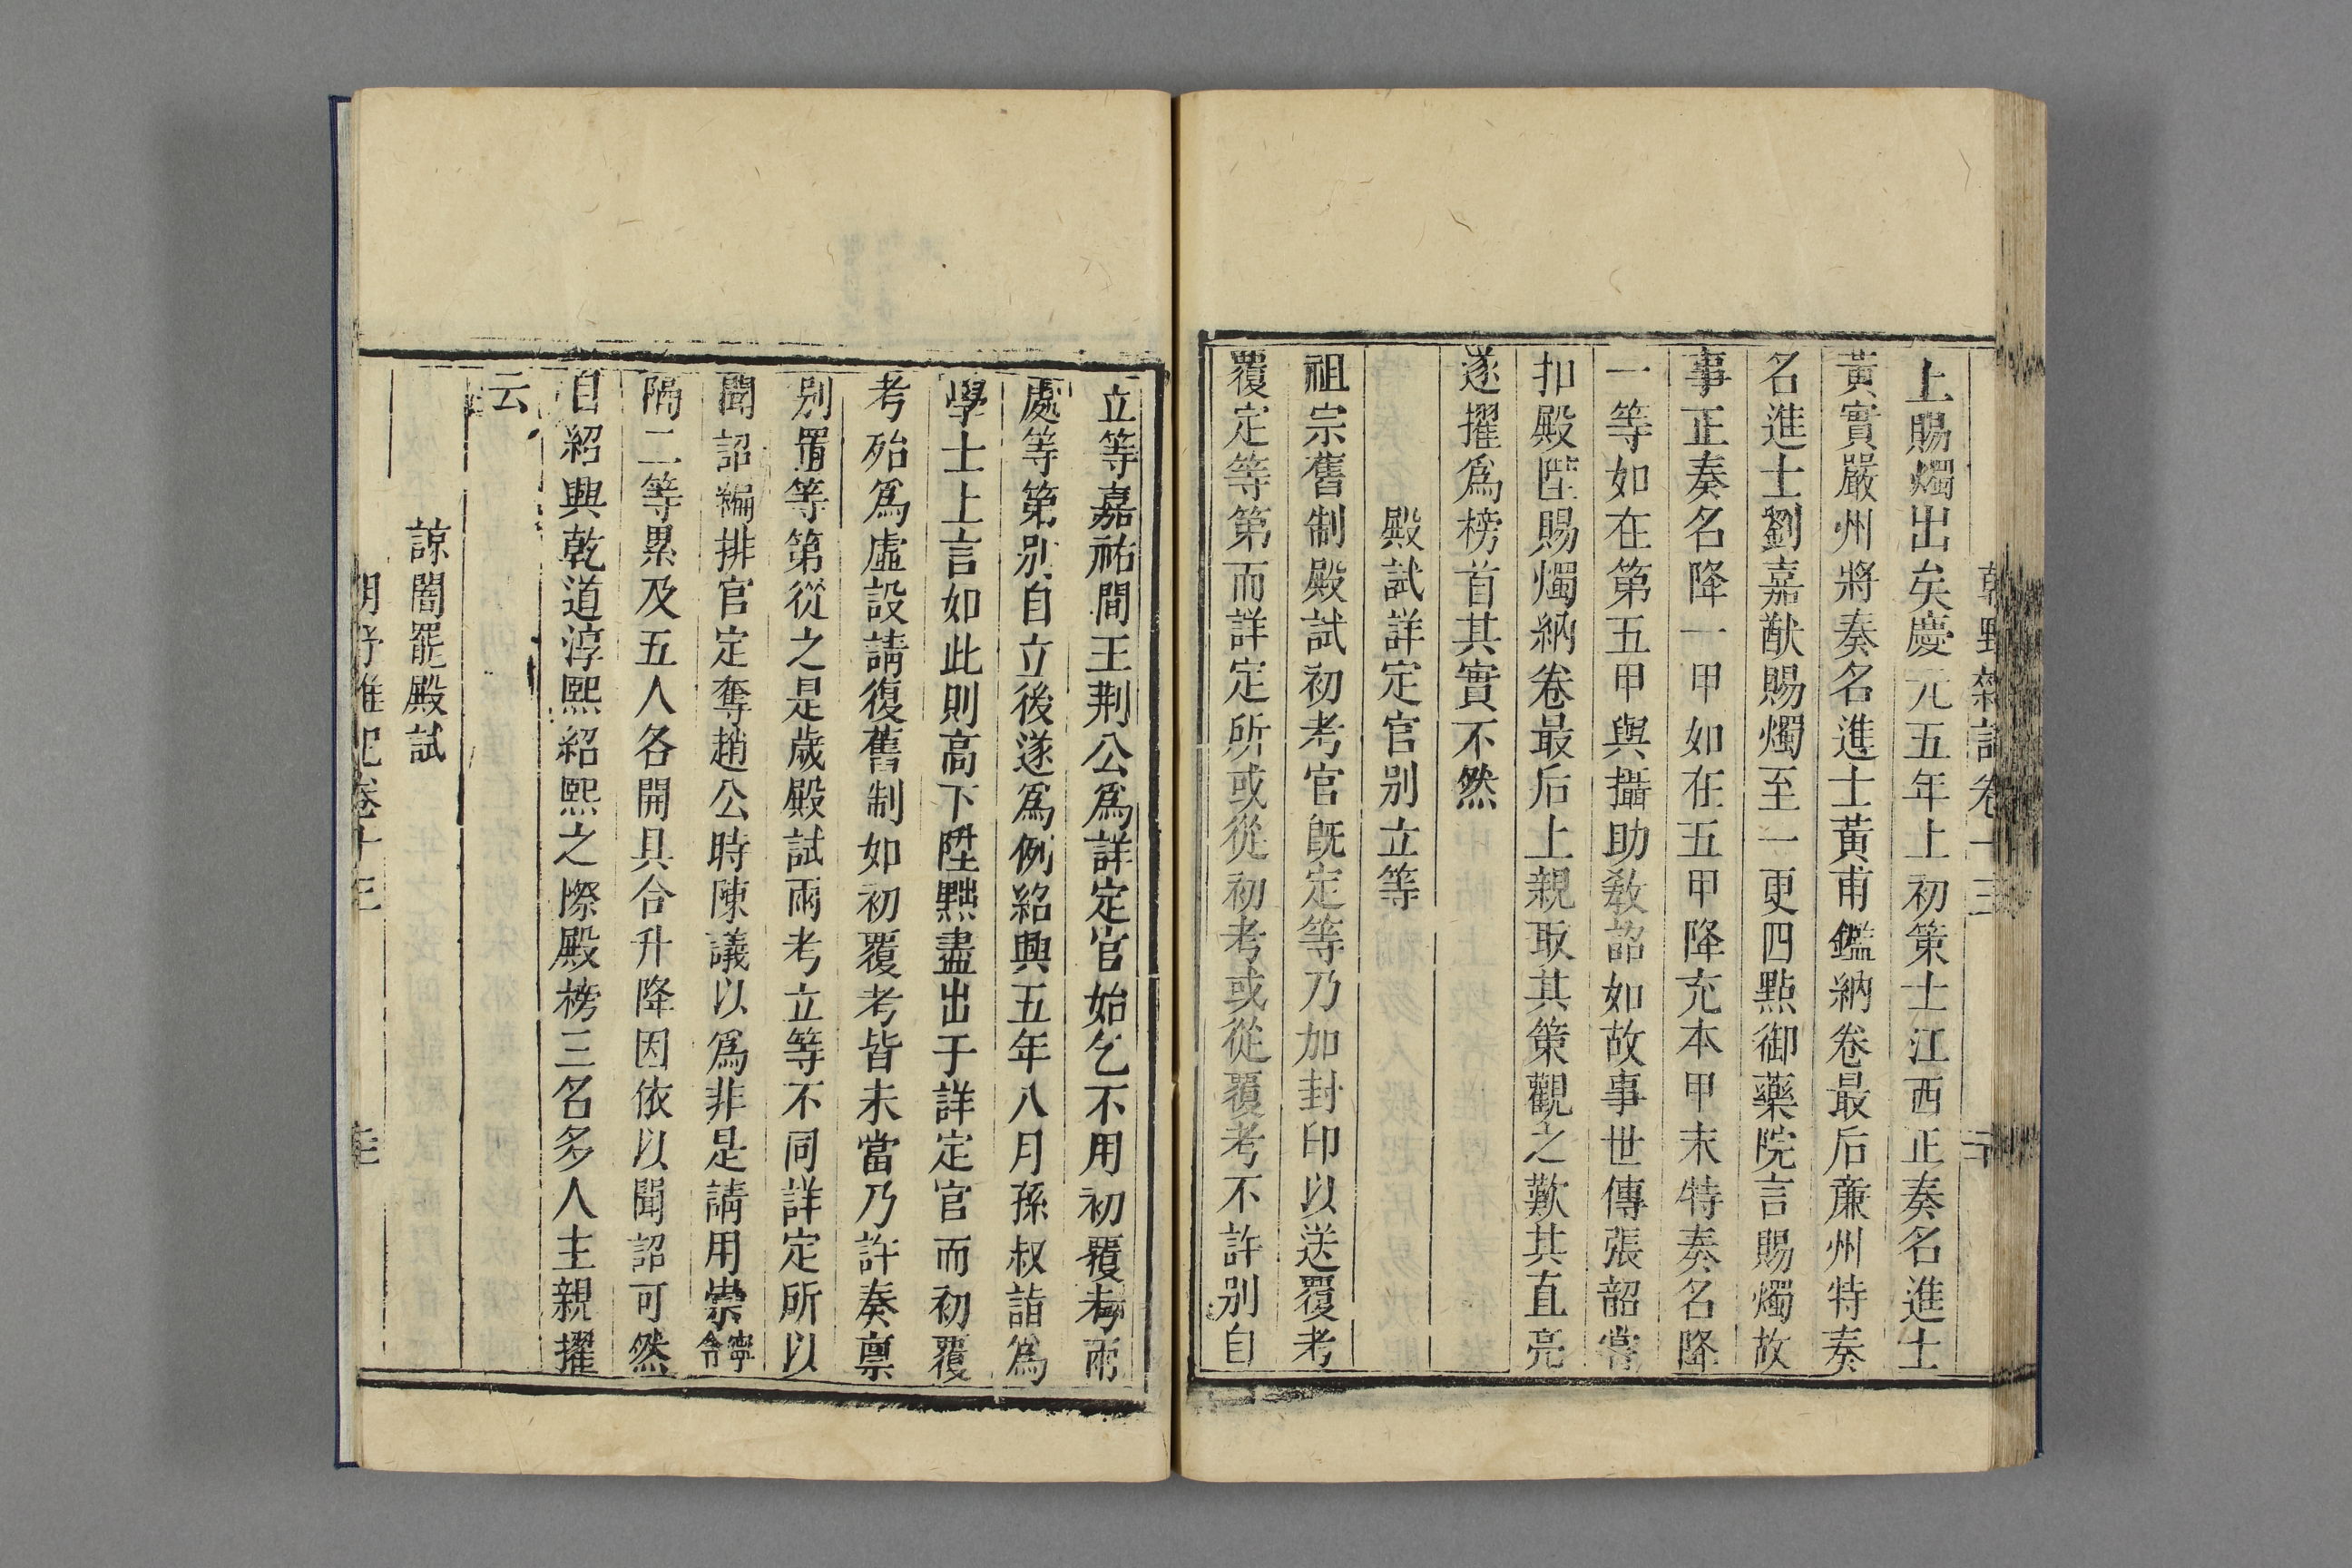 朝野雜記卷十三
上賜燭出矣慶元五年上初策士江西正奏名進士
黃實嚴州將奏名進士黃甫鑑納卷最后㢘州特奏
名進士劉嘉猷賜燭至一更四點御藥院言賜燭故
事正奏名降一甲如在五甲降充本甲末特奏名降
一等如在第五甲與攝助敎詔如故事世傳張韶嘗
扣殿陛賜燭納卷最后上親取其策觀之歎其直亮
遂擢爲榜首其實不然
殿試詳定官别立等
祖宗舊制殿試初考官旣定等乃加封印以送覆考
覆定等第而詳定所或從初考或從覆考不許别自
立等嘉祐間王荆公爲詳定官始乞不用初覆考兩
處等第别自立後遂爲例紹興五年八月孫叔詣爲
學士上言如此則高下陞黜盡出于詳定官而初覆
考殆爲虛設請復舊制如初覆考皆未當乃許奏禀
别置等第從之是歲殿試兩考立等不同詳定所以
聞詔編排官定奪趙公時陳議以爲非是請用崇寧令
隔二等累及五人各開具合升降因依以聞詔可然
自紹興乾道淳熙紹熙之際殿榜三名多人主親擢
云
諒闇罷殿試